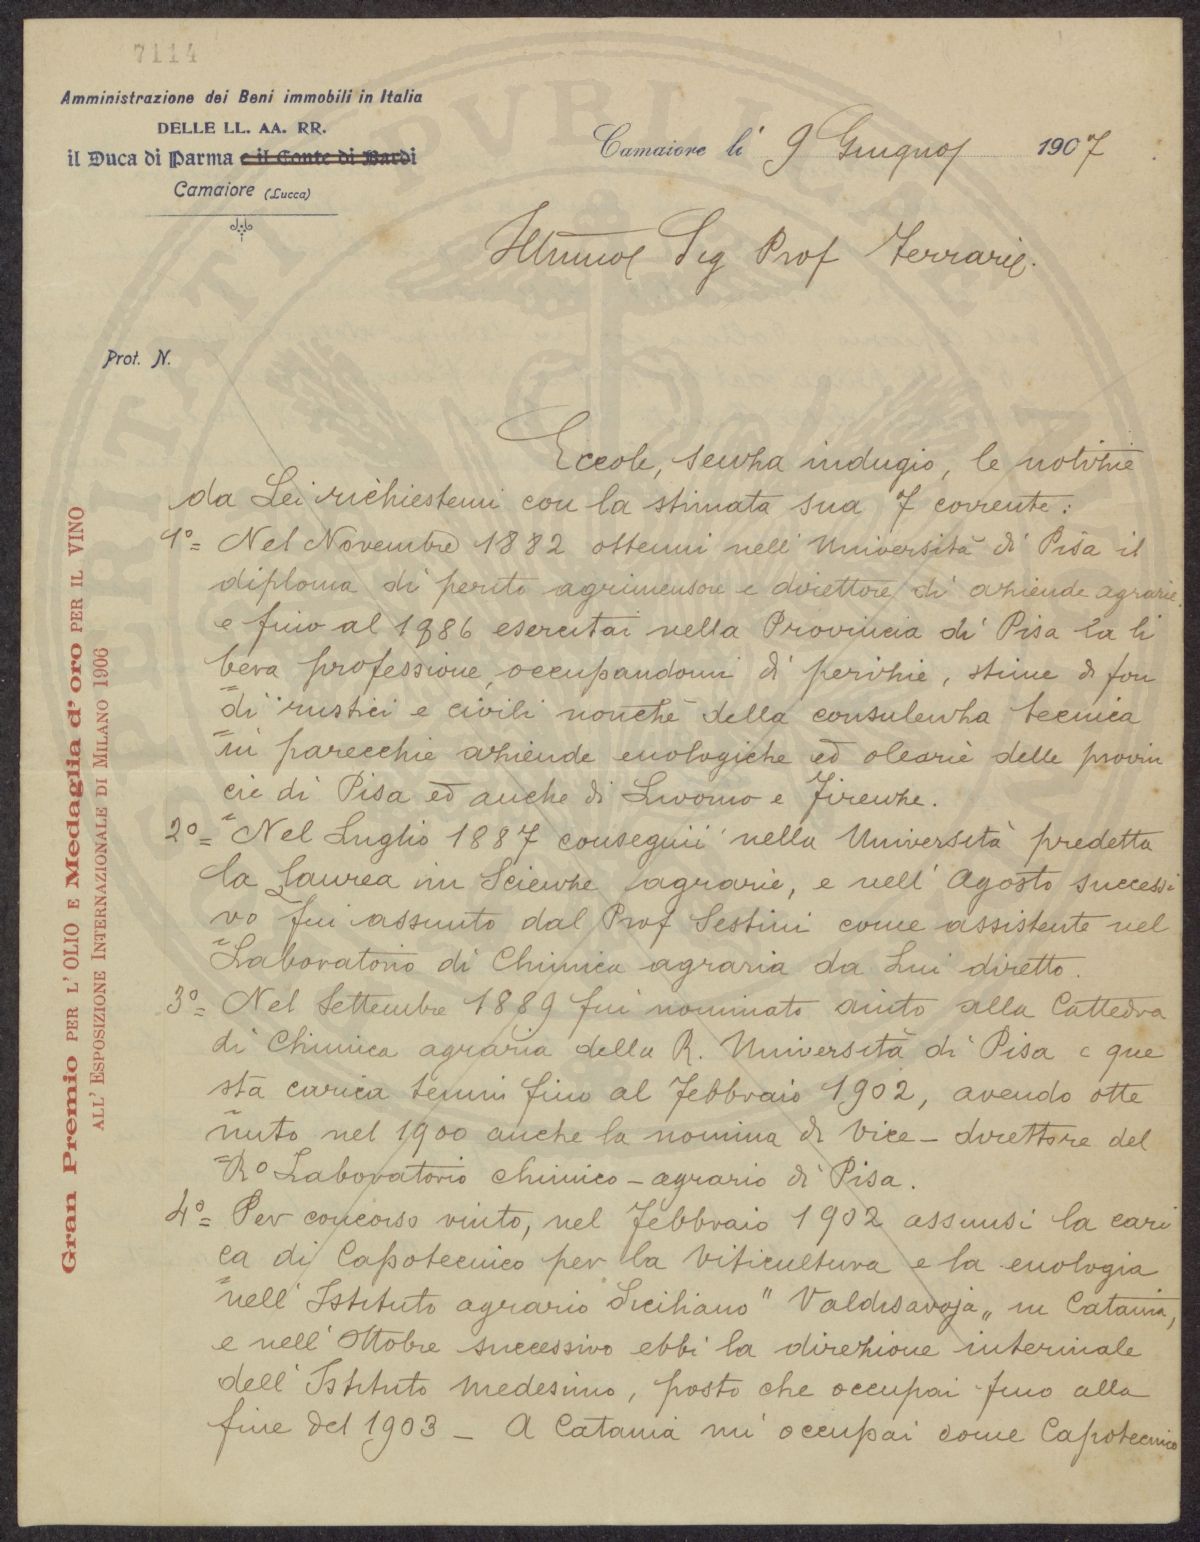 7114
Amministrazione dei Beni immobili in Italia
DELLE LL. AA. RR.
il Duca di Parma e il Conte di Bardi
Camaiore (Lucca)
Camaiore li 9 Giugno 1907
Illmo Sig Prof Ferrari.
Prot. N.
Eccole, senza indugio, le notizie
da Lei richiestemi con la stimata sua 7 corrente:
1º= Nel Novembre 1882 ottenni nell'Università di Pisa il
diploma di perito agrimensore e direttore di aziende agrarie
e fino al 1886 esercitai nella Provincia di Pisa la li
bera professione, occupandomi di perizie, stime di fon
di rustici e civili nonchè della consulenza tecnica
in parecchie aziende enologiche ed olearie delle provin
cie di Pisa ed anche di Livorno e Firenze.
2º= Nel Luglio 1887 conseguii nella Università predetta
la Laurea in Scienze agrarie, e nell'Agosto successi
vo fui assunto dal Prof Sestini come assistente nel
Laboratorio di Chimica agraria da Lui diretto.
3º= Nel Settembre 1889 fui nominato aiuto alla Cattedra
di Chimica agraria della R. Università di Pisa e que
sta carica tenni fino al Febbraio 1902, avendo otte
nuto nel 1900 anche la nomina di Vice-direttore del
Rº Laboratorio chimico-agrario di Pisa.
4º= Per concorso vinto, nel Febbraio 1902 assunsi la cari
ca di Capotecnico per la Viticultura e la enologia
nell'Istituto agrario Siciliano "Valdisavoja" in Catania,
e nell'Ottobre successivo ebbi la direzione interinale
dell'Istituto medesimo, posto che occupai fino alla
fine del 1903 - A Catania mi occupai come Capotecnico
Gran Premio PER L'OLIO E Medaglia d'oro PER IL VINO
ALL'ESPOSIZIONE INTERNAZIONALE DI MILANO 1906